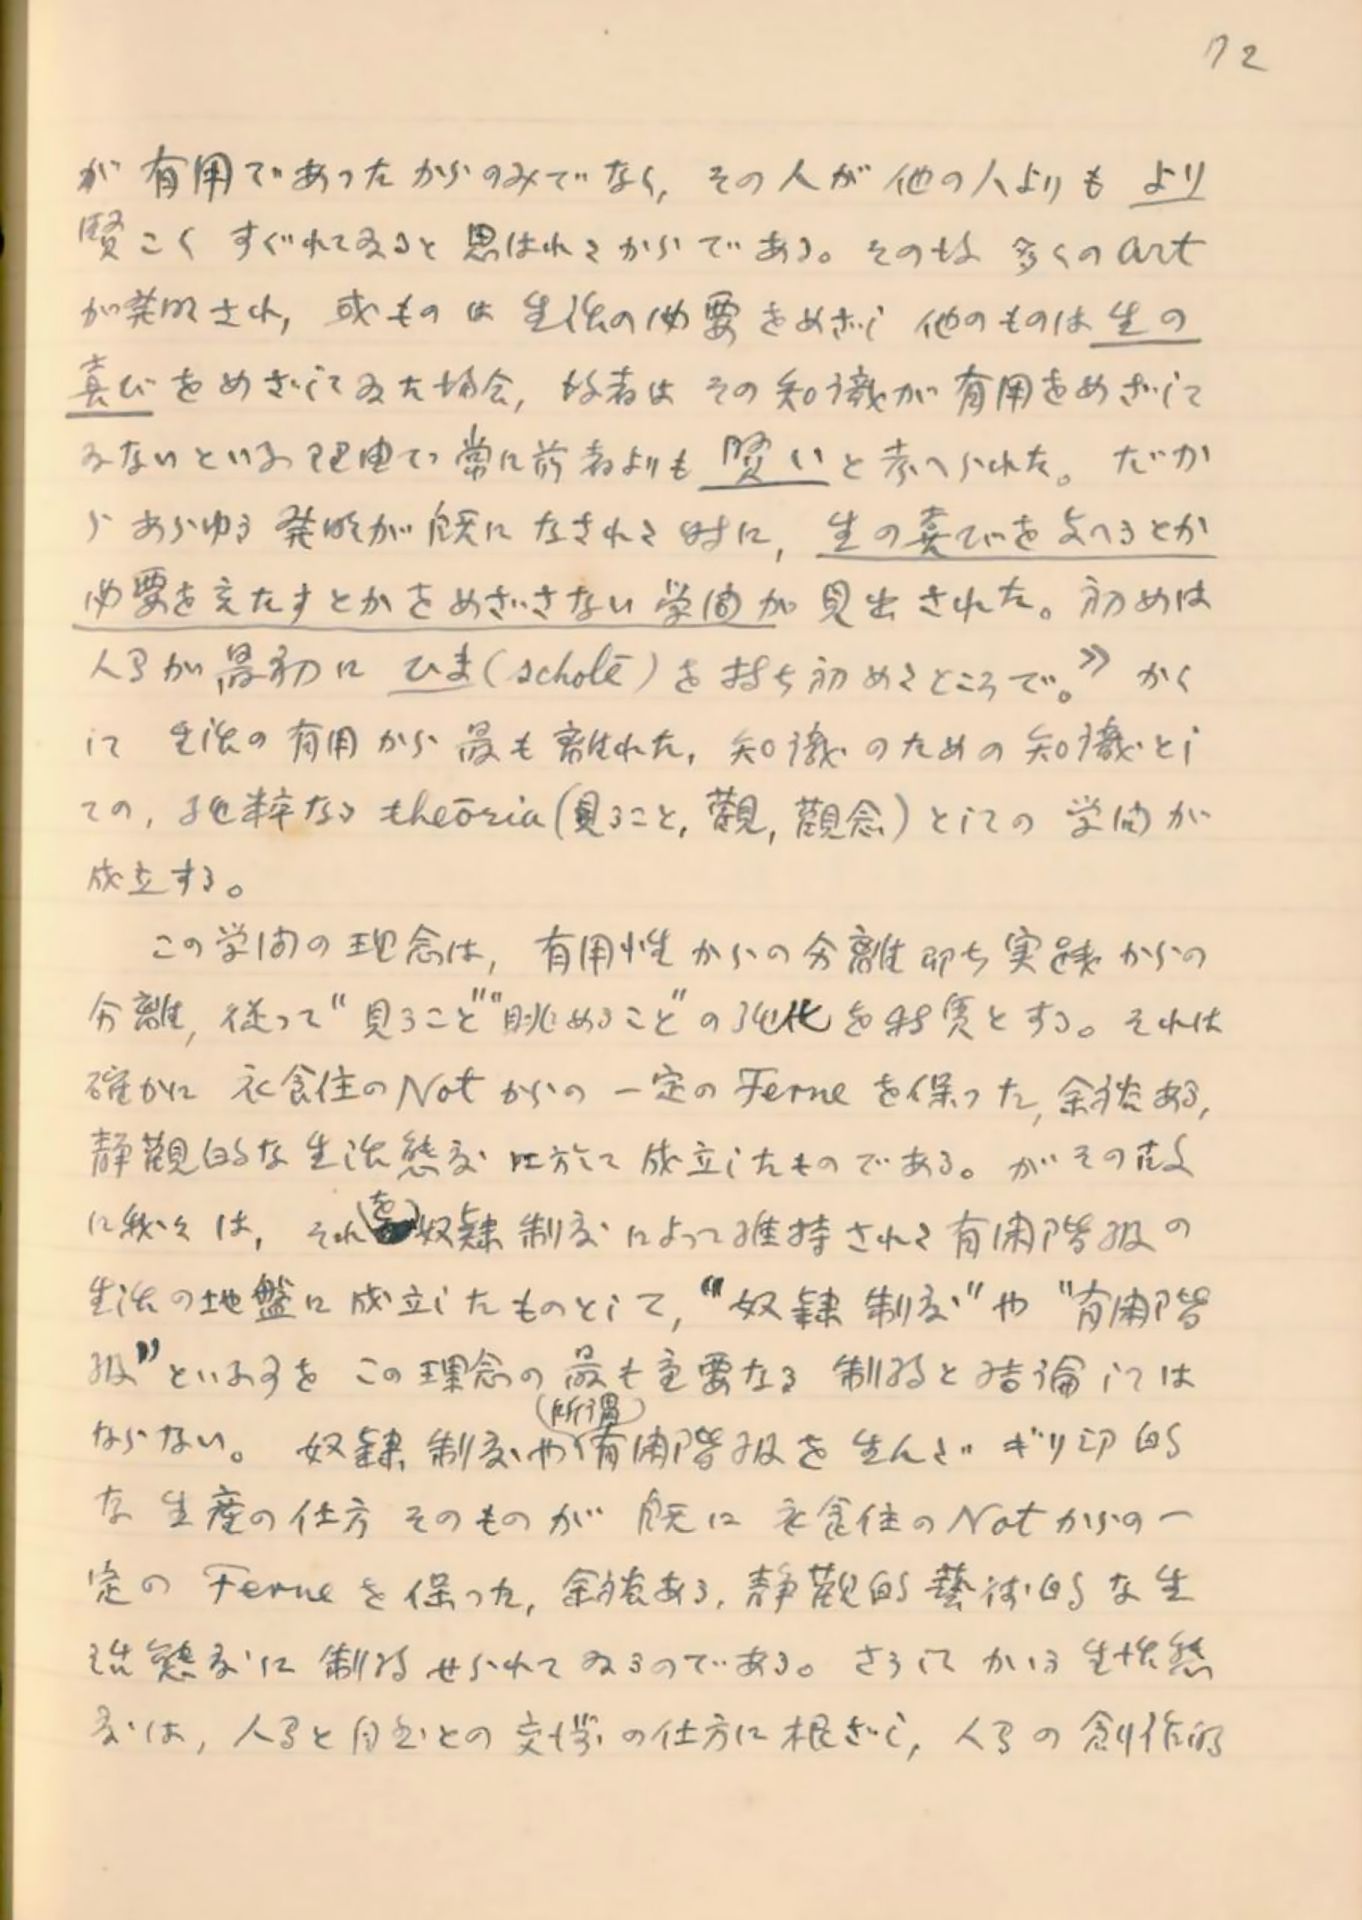 72
が有用であったからのみでなく, その人が他の人よりもより
賢こくすぐれてゐると思はれるからである。その故多くのart
が発明され, 或ものは生活の必要をめざし他のものは生の
喜びをめざしてゐた場合, 後者はその知識が有用をめざして
ゐないといふ理由で常に前者よりも賢いと考へられた。だか
らあらゆる発明が既になされた時に, 生の喜びを与へるとか
必要を充たすとかをめざさない学問が見出された。初めは
人間が最初にひま(scholē)を持ち初めたところで。》かく
して生活の有用から最も離れた, 知識のための知識とし
ての, 純粋なる theōria (見ること, 観, 觀念)としての学問が
成立する。
この学問の理念は, 有用性からの分離即ち実践からの
分離, 従って"見ること""眺めること"の純化を特質とする。それは
確かに衣食住のNotからの一定のFerneを保った, 余裕ある,
静觀的な生活態度に於て成立したものである。がその故
に我々は, それ(を)奴隷制度によって維持された有閑階級の
生活の地盤に成立したものとして, "奴隷制度"や"有閑階
級"といふ事をこの理念の最も重要なる制約と結論しては
ならない。奴隷制度や(所謂)有閑階級を生んだギリシア的
な生産の仕方そのものが既に衣食住のNotからの一
定のFerneを保った, 余裕ある, 静觀的藝術的な生
活態度に制約せられてゐるのである。さうしてかゝる生活態
度は, 人間と自然との交渉の仕方に根ざし, 人間の創作的